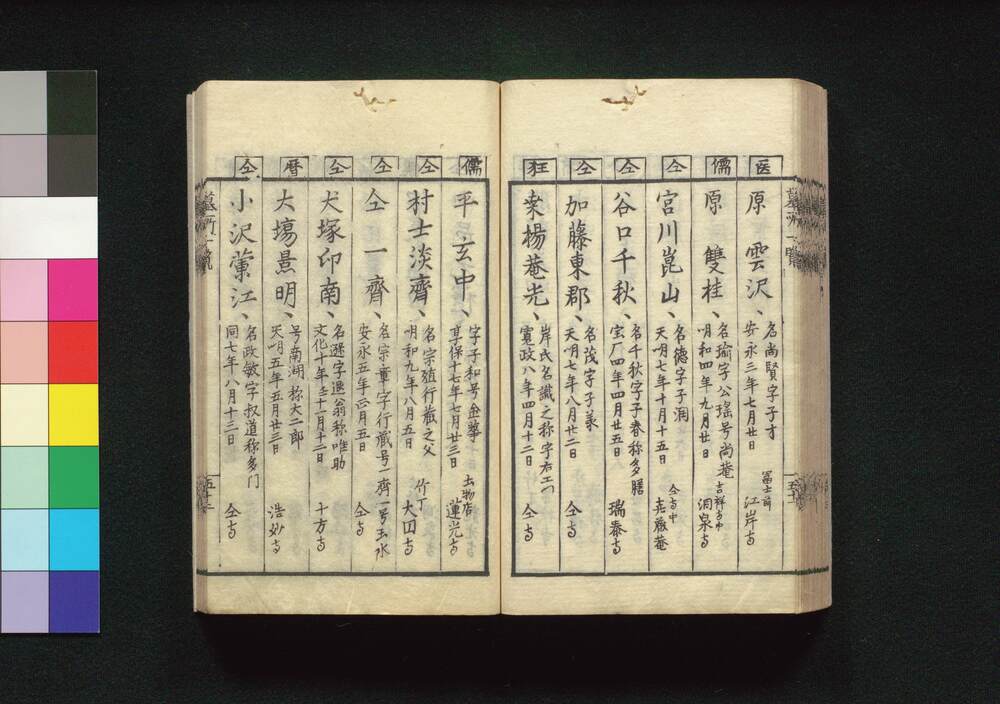 医
原 雲沢、
名尚賢字子才
安永三年七月廿日
冨士前
江岸寺
儒
原 雙桂、
名瑜字公瑶号尚菴
明和四年九月廿日
吉祥寺中
洞泉寺
仝
宮川崑山、
名德字子潤
天明七年十月十五日
仝寺中
仝
谷口千秋、
名千秋字子春称多膳
宝厂四年四月廿五日
瑞泰寺
仝
加藤東郡、
名茂字子義
天明七年八月廿二日
仝寺
狂
楊菴光、
岸氏名識之称宇右エ门
寛政八年四月十二日
仝寺
墓所一覧
儒
平 玄中、
字子和号金華
享保十七年七月廿三日
蓮光寺
仝
村士淡齊、
名宗殖行蔵之父
明和九年八月五日
竹丁
大田寺
仝
仝 一齊、
名宗章字行蔵号一齊一号玉水
安永五年正月五日
仝寺
仝
犬塚印南、
名遜字退翁称唯助
文化十年十一月十二日
十方寺
暦
大塲景明、
号南湖 称大二郎
天明五年五月廿三日
浩妙寺
仝
小沢蘭江、
名政敏字叔道称多门
同七年八月十三日
仝寺
墓所一覧
五十三